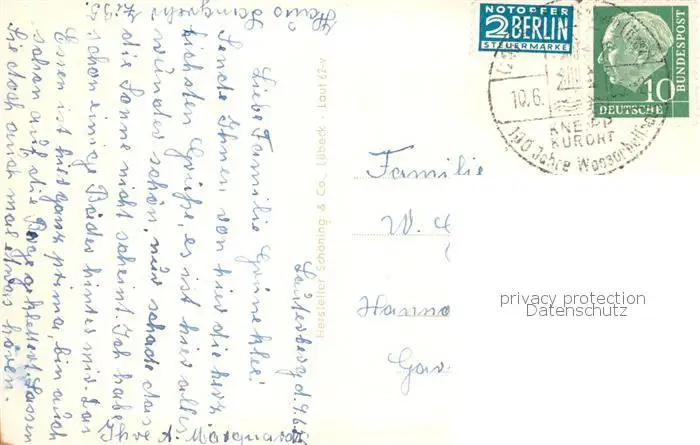 Lauterberg d. 9.6.
Liebe Familie Grünekle!
Sende Ihnen von hier die herz
lichsten Grüße, es ist hier alles
wunderschön, nur schade das
die Sonne nicht scheint. Ich habe
schon einige Bäder hinter mir. Das
Essen ist hier ganz prima, bin auch
schon auf die Berge geklettert. Lassen
Sie doch auch mal etwas hören.
Ihre A. Marquardt
Haus
Zi 35.
Hersteller: Schöning & Co., Lübeck
Laut 62-v
NOTOPFER
2 BERLIN
STEUERMARKE
DEUTSCHE
BUNDESPOST
10
10.6.
KNEIPP
KURORT
Jahre Wasserheil
Familie
W.
Hanno
privacy protection
Datenschutz